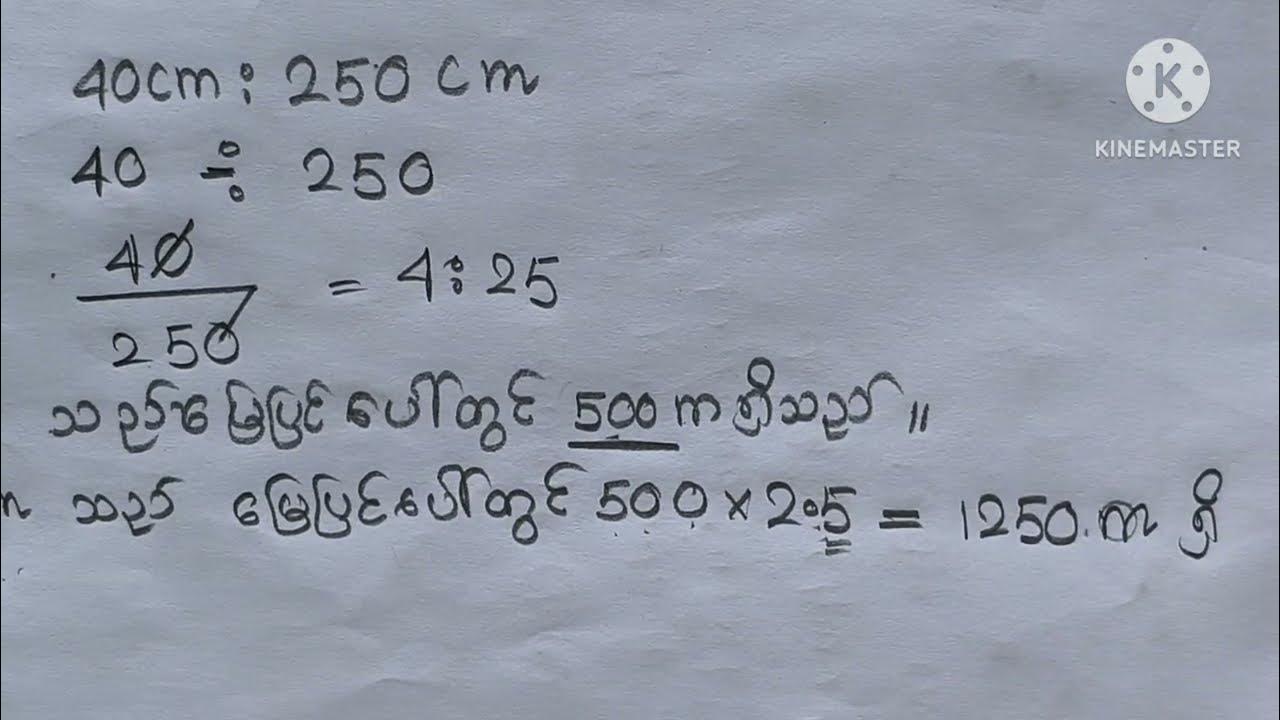 40cm : 250 cm
40 ÷ 250
40
250
= 4:25
သည် မြေပြင်ပေါ်တွင် 500 ကာ ရှိသည် ။
သည် မြေပြင်ပေါ်တွင် 500 × 2.5 = 1250 ကာ ရှိ
K
KINEMASTER